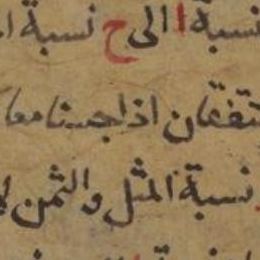 نسبة ا الى ح نسبة ا
متفقان اذا جسنا معا
نسبة المثل والثمن لا